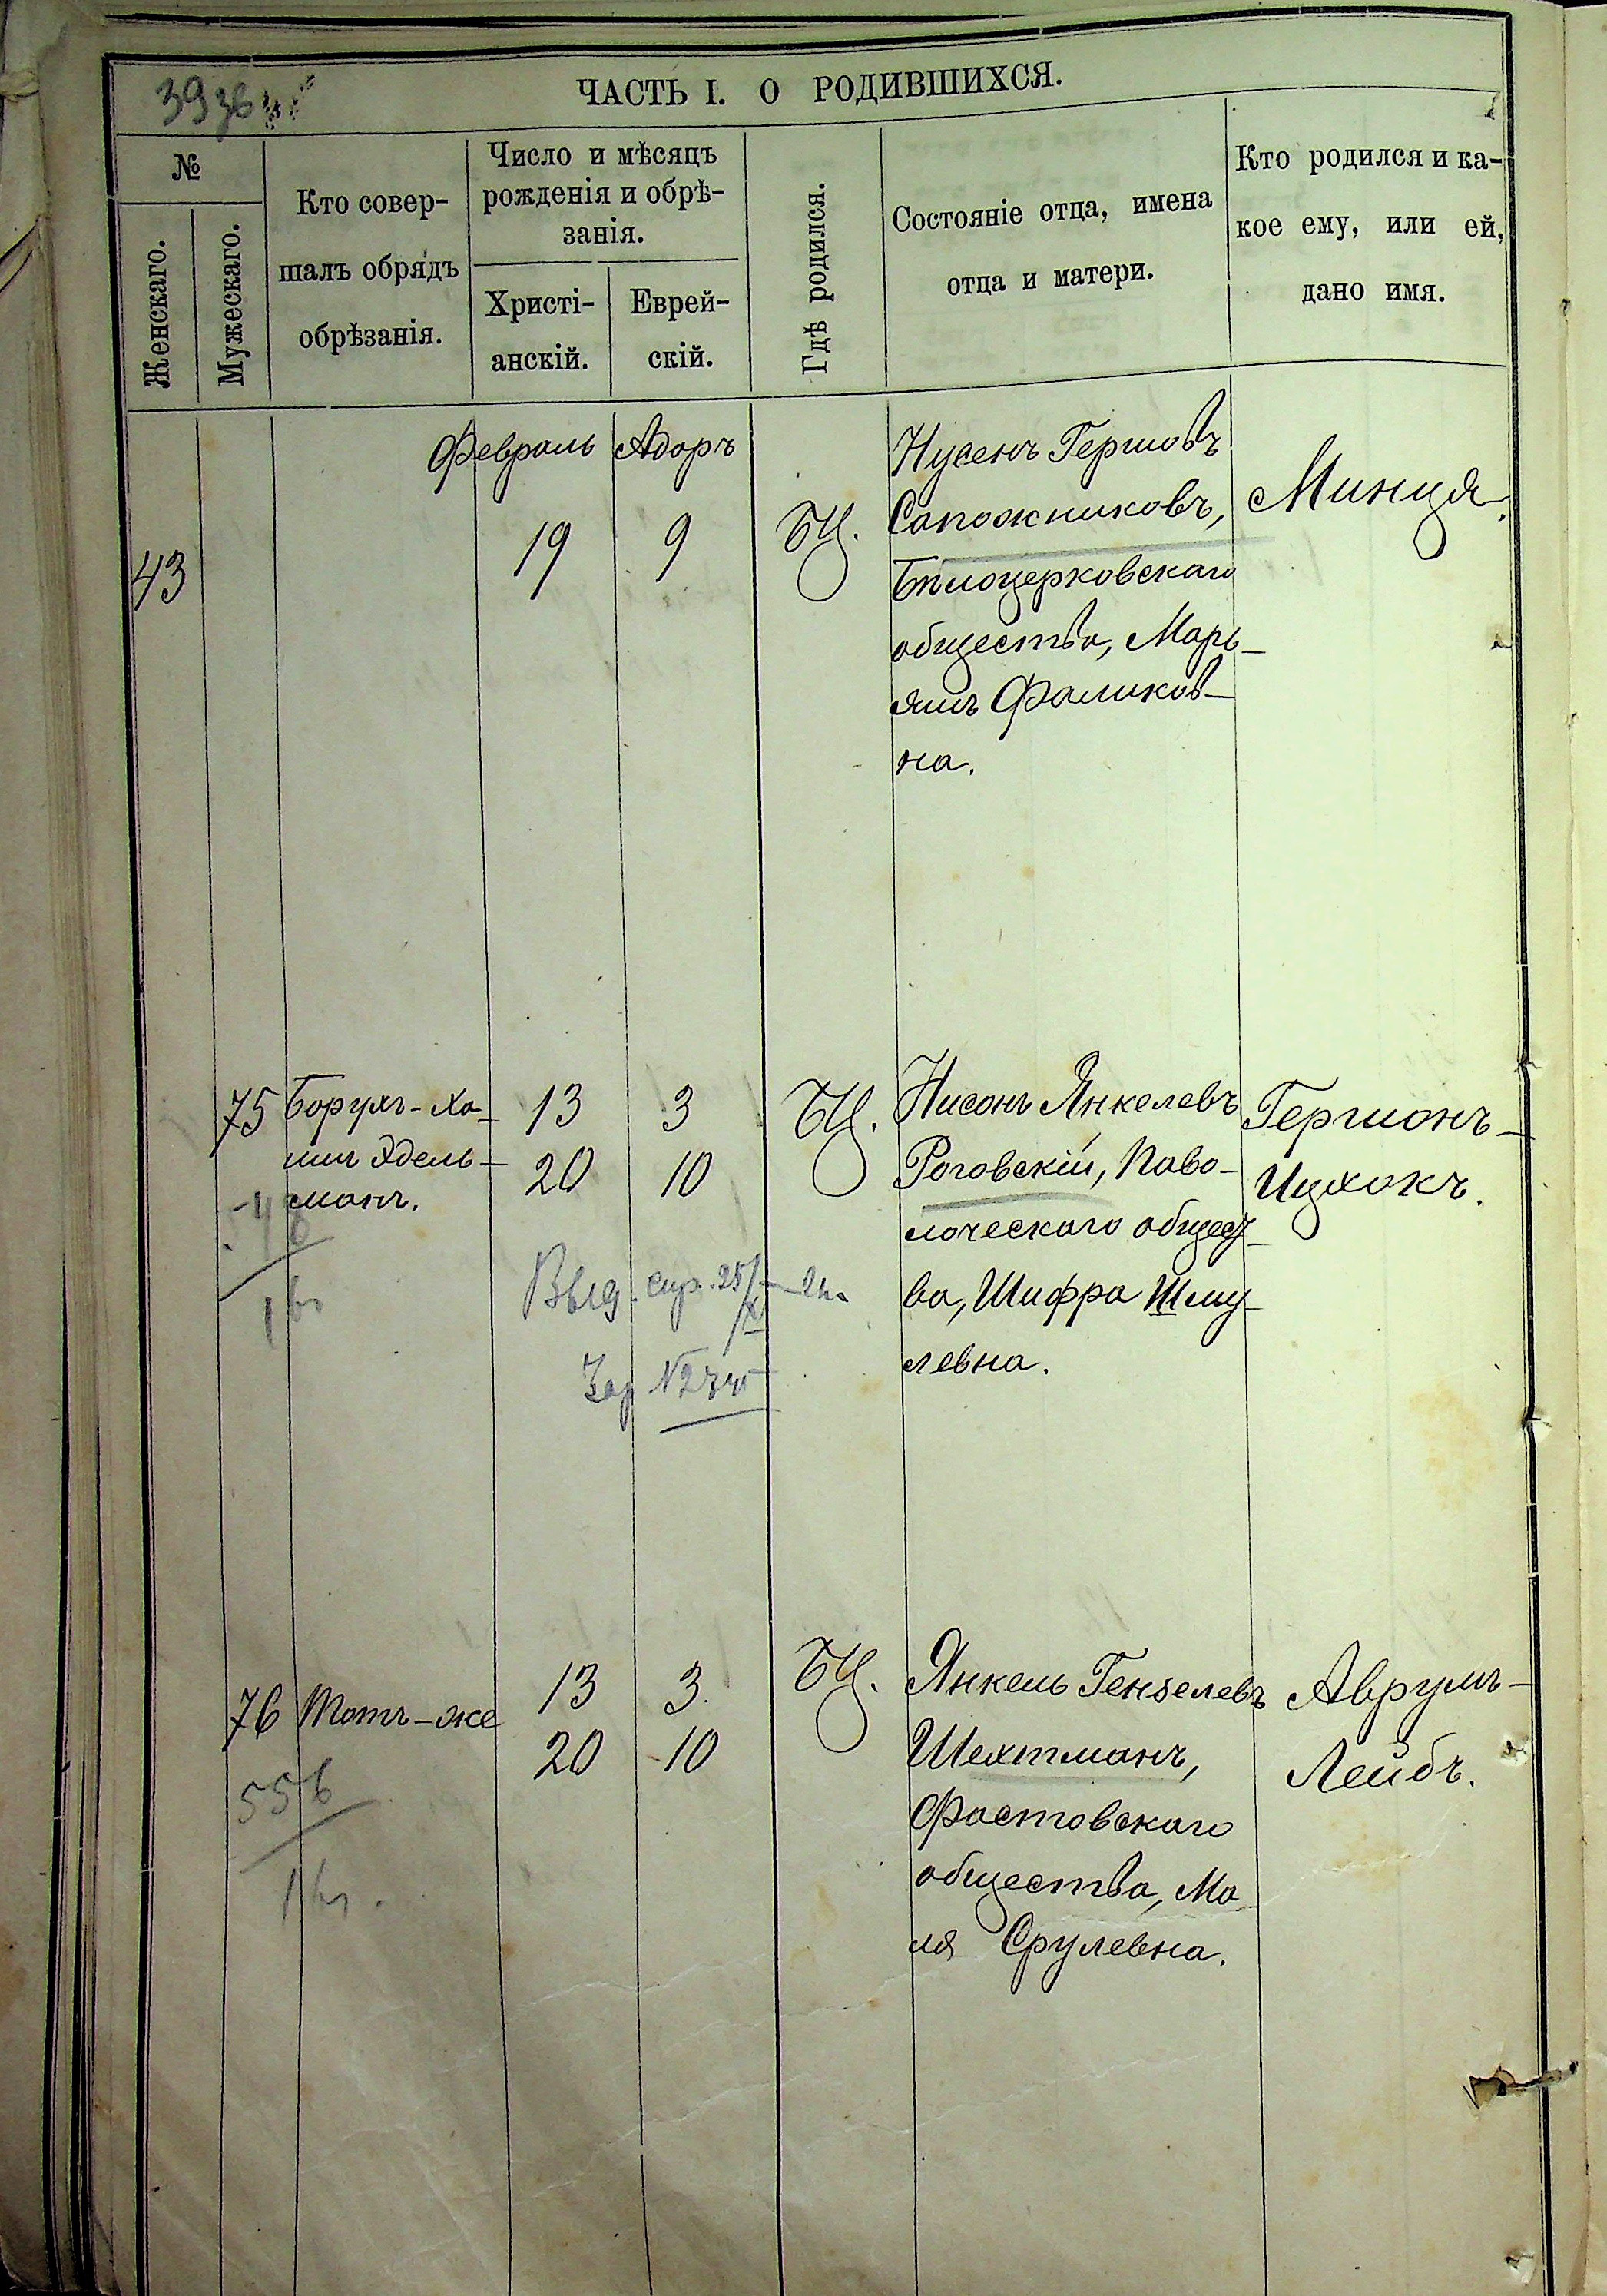 ЧАСТЬ I. О РОДИВШИХСЯ.
№
Женскаго.
Мужескаго.
Кто совер-
шалъ обрядъ
обрѣзанія.
Число и мѣсяцъ
рожденія и обрѣ-
занія.
Христі-
анскій.
Еврей-
скій.
Гдѣ родился.
Состояніе отца, имена
отца и матери.
Кто родился и ка-
кое ему, или ей,
дано имя.
Февраль Адаръ
43
19 9
БЦ.
Нусенъ Гершовъ
Сапожниковъ,
Бѣлоцерковскаго
общества, Марь-
ямъ Фаликов-
на.
Минця.
75
Борухъ-Ха-
имъ Эдель-
манъ.
13 3
20 10
БЦ.
Нисонъ Янкелевъ
Роговскій, Паво-
лочскаго общест-
ва, Шифра Шму-
левна.
Гершонъ-
Ицхокъ.
Выд.
76
Тотъ-же
13 3.
20 10
БЦ.
Янкель Гензелевъ
Шехтманъ,
Фастовскаго
общества, Ма
ля Срулевна.
Аврумъ-
Лейбъ.
556